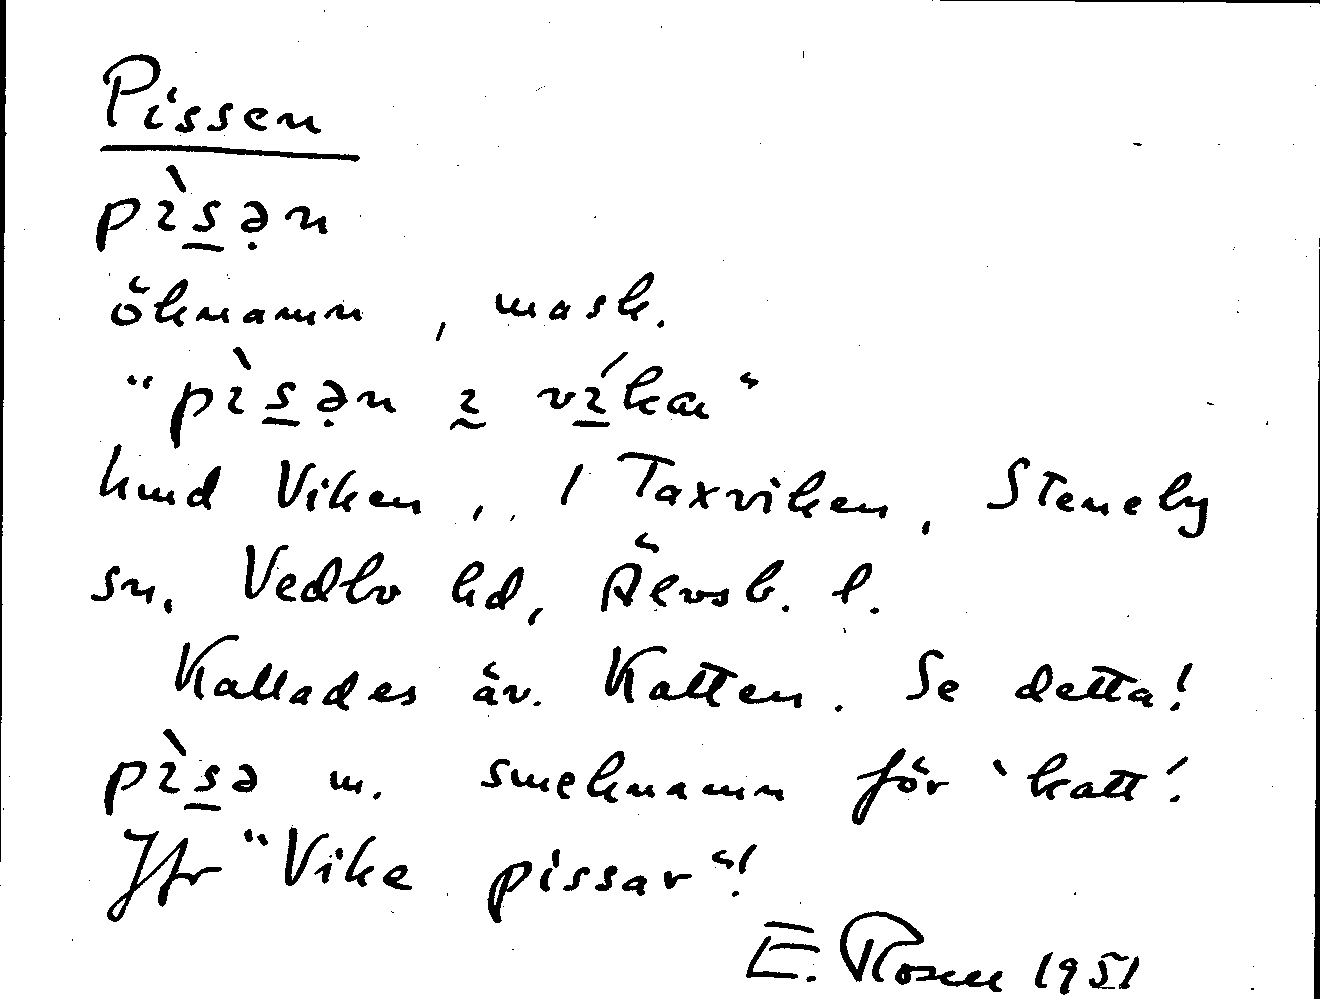 Pissen
pìs̲ə̣n
öknamn, mask.
"pìs̲ə̣n ɪ̰ vɪ̲́kæ"
hmd Viken, 1 Taxviken, Steneby
sn, Vedbo hd, Älvsb. l.
Kallades äv. Katten. Se detta!
pìs̲ə m. smeknamn för 'katt'.
Jfr "Vike pissar"!
E. Rosen 1951